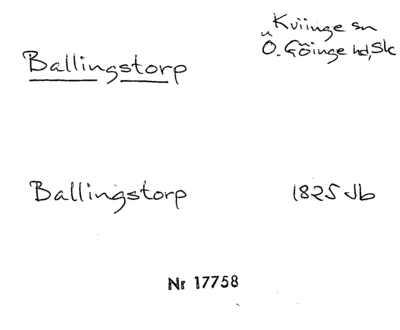 Kviinge sn
Ö. Göinge hd, Sk
Ballingstorp
Ballingstorp 1825 Jb
Nr 17758